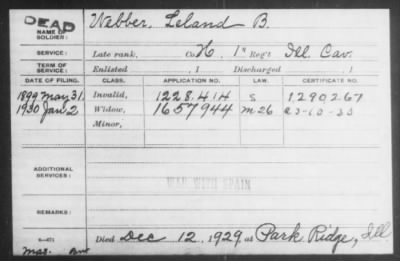 DEAD
NAME OF SOLDIER: Webber, Leland B.
SERVICE: Late rank, Co. H, 1st Reg't Ill. Cav.
TERM OF SERVICE: Enlisted , 1 Discharged , 1
DATE OF FILING. CLASS. APPLICATION NO. LAW. CERTIFICATE NO.
1899 May 31. Invalid, 1228.414 S 1290267
1930 Jan 2 Widow, 1657944 M-26
Minor,
ADDITIONAL SERVICES:
WAR WITH SPAIN
REMARKS:
Died Dec 12, 1929, at Park Ridge, Ill